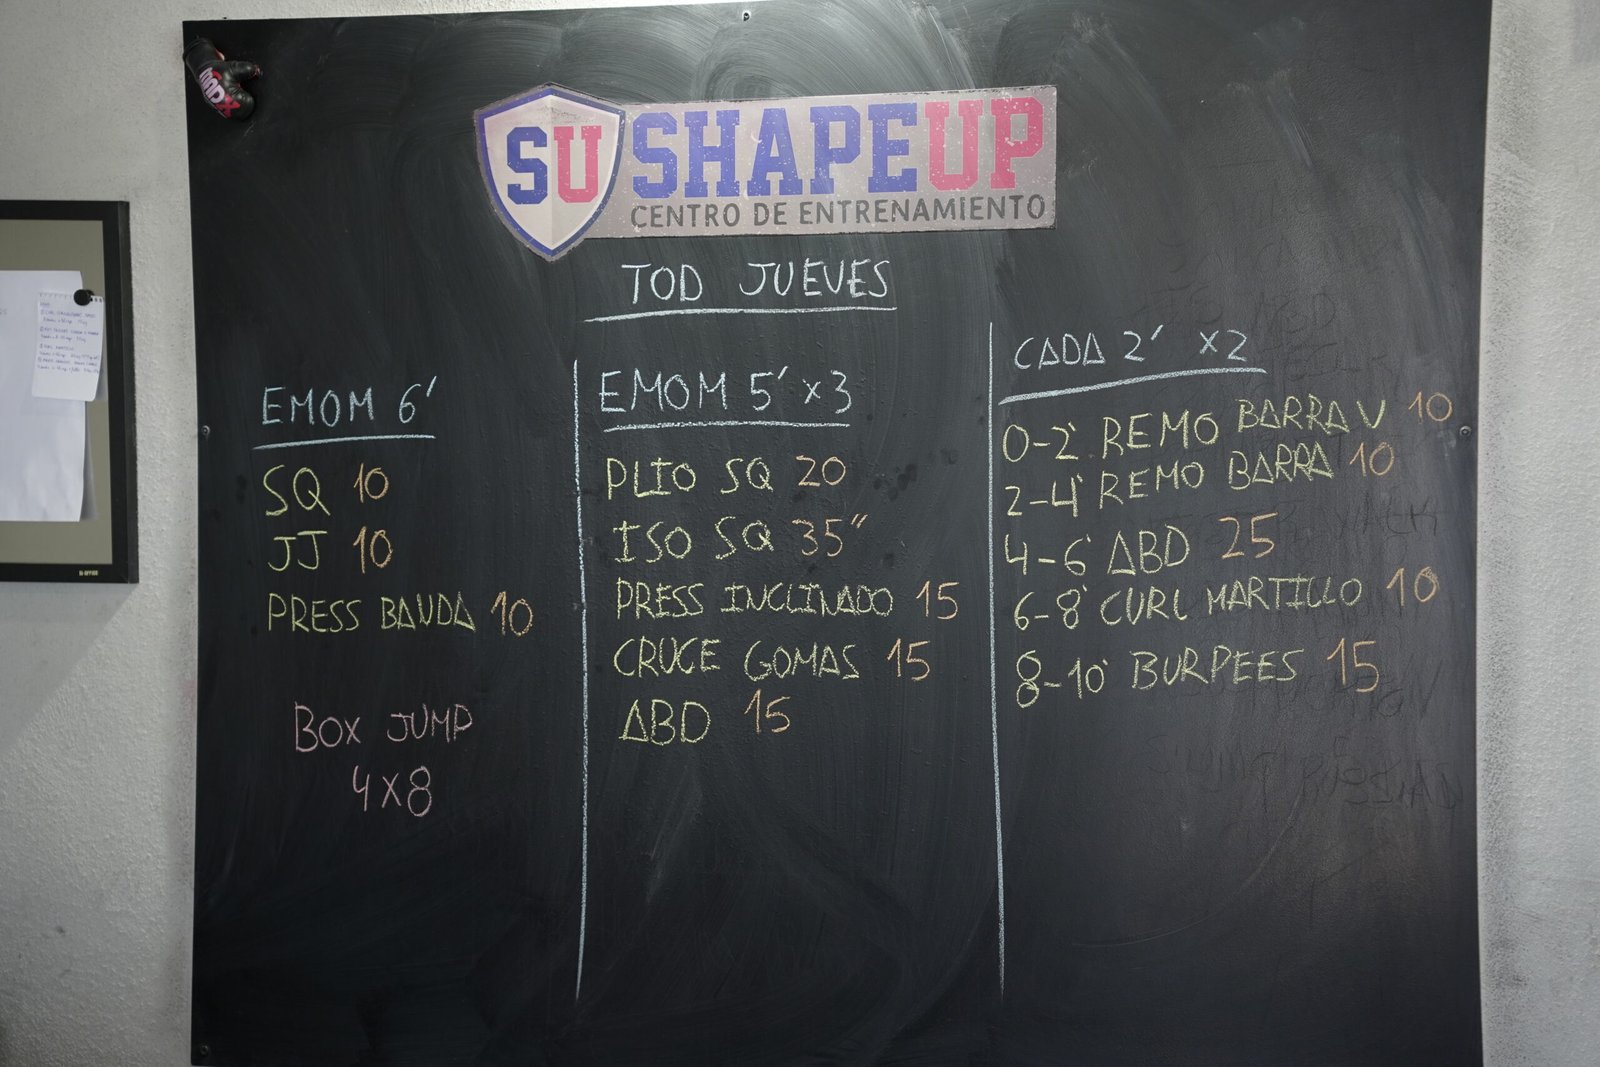 SU SHAPEUP
CENTRO DE ENTRENAMIENTO
TOD JUEVES
EMOM 6'
SQ 10
JJ 10
PRESS BANDA 10
BOX JUMP
4X8
EMOM 5' x3
PLIO SQ 20
ISO SQ 35"
PRESS INCLINADO 15
CRUCE GOMAS 15
ABD 15
CADA 2' x2
0-2' REMO BARRA V 10
2-4' REMO BARRA 10
4-6' ABD 25
6-8' CURL MARTILLO 10
8-10' BURPEES 15